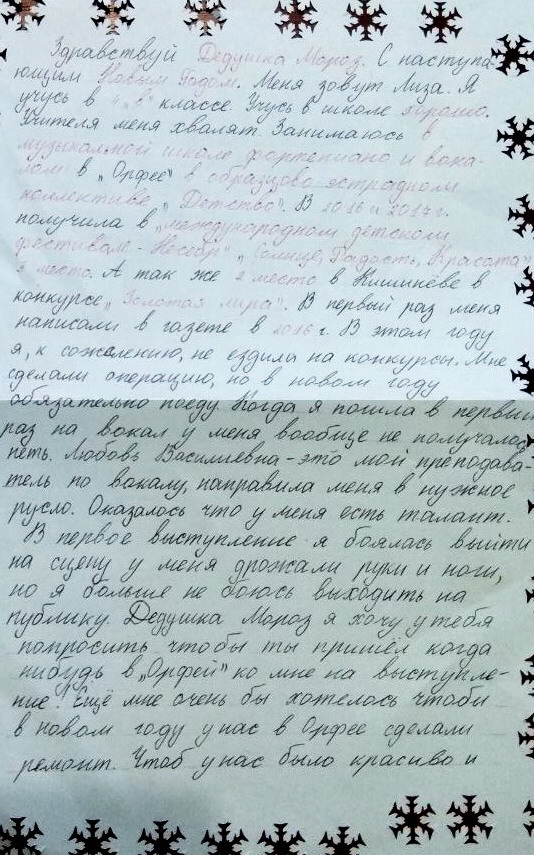 Здравствуй Дедушка Мороз. С наступа-
ющим Новым Годом. Меня зовут Лиза. Я
учусь в 4 „в" классе. Учусь в школе хорошо.
Учителя меня хвалят. Занимаюсь в
музыкальной школе фортепиано и вока-
лом в „Орфее" в образцово эстрадном
коллективе „Детство". В 2016 и 2017 г.
получила в „международном детском
фестивале - Несебр" „Солнце, Радость, Красота"
2 место. А так же 2 место в Кишинёве в
конкурсе „Золотая лира". В первый раз меня
написали в газете в 2016 г. В этом году
я, к сожелению, не ездила на конкурсы. Мне
сделали операцию, но в новом году
обязательно поеду. Когда я пошла в первый
раз на вокал у меня вообще не получалос
петь. Любовь Василиевна - это мой преподава-
тель по вокалу, направила меня в нужное
русло. Оказалось что у меня есть талант.
В первое выступление я боялась выйти
на сцену у меня дрожали руки и ноги,
но я больше не боюсь выходить на
публику. Дедушка Мороз я хочу у тебя
попросить чтобы ты пришёл когда
нибудь в „Орфей" ко мне на выступле-
ние! Ещё мне очень бы хотелось чтобы
в новом году у нас в Орфее сделали
ремонт. Чтоб у нас было красиво и